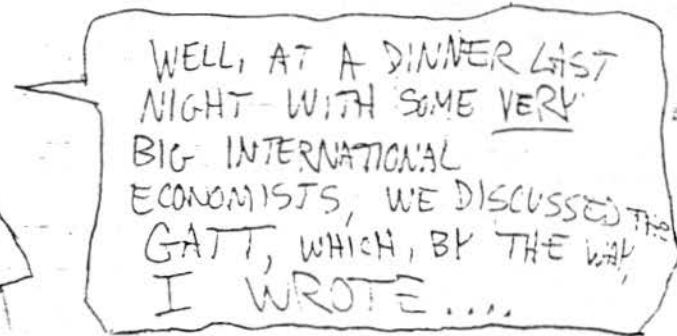 WELL, AT A DINNER LAST
NIGHT WITH SOME VERY
BIG INTERNATIONAL
ECONOMISTS, WE DISCUSSED THE
GATT, WHICH, BY THE WAY,
I WROTE....